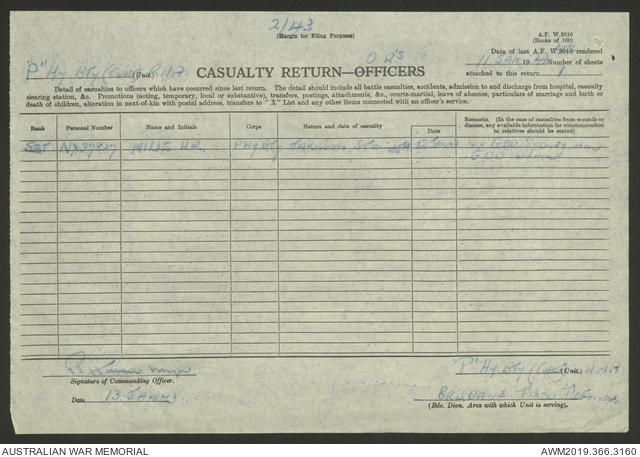 2/43
(Margin for Filing Purposes)
A.F. W.3010
(Books of 100)
Date of last A.F. W.3010 rendered
11 JAN 1943 Number of sheets
attached to this return 1
"P" Hy Bty (Unit.)
CASUALTY RETURN—OFFICERS
O R's
Detail of casualties to officers which have occurred since last return. The detail should include all battle casualties, accidents, admission to and discharge from hospital, casualty
clearing station, &c. Promotions (acting, temporary, local or substantive), transfers, postings, attachments, &c., courts-martial, leave of absence, particulars of marriage and birth or
death of children, alteration in next-of-kin with postal address, transfers to "X" List and any other items connected with an officer's service.
Rank Personal Number Name and Initials Corps Nature and date of casualty Date Remarks. (In the case of casualties from wounds or
disease, any available information for communication
to relatives should be stated)
SGT MILLS Taken on Strength GDD Sydney
GDD
Major
Signature of Commanding Officer.
Date 13 Jan 43
"P" Hy Bty (Unit.)
BRISBANE Fixed Defences
(Bde. Divn. Area with which Unit is serving).
AUSTRALIAN WAR MEMORIAL
AWM2019.366.3160